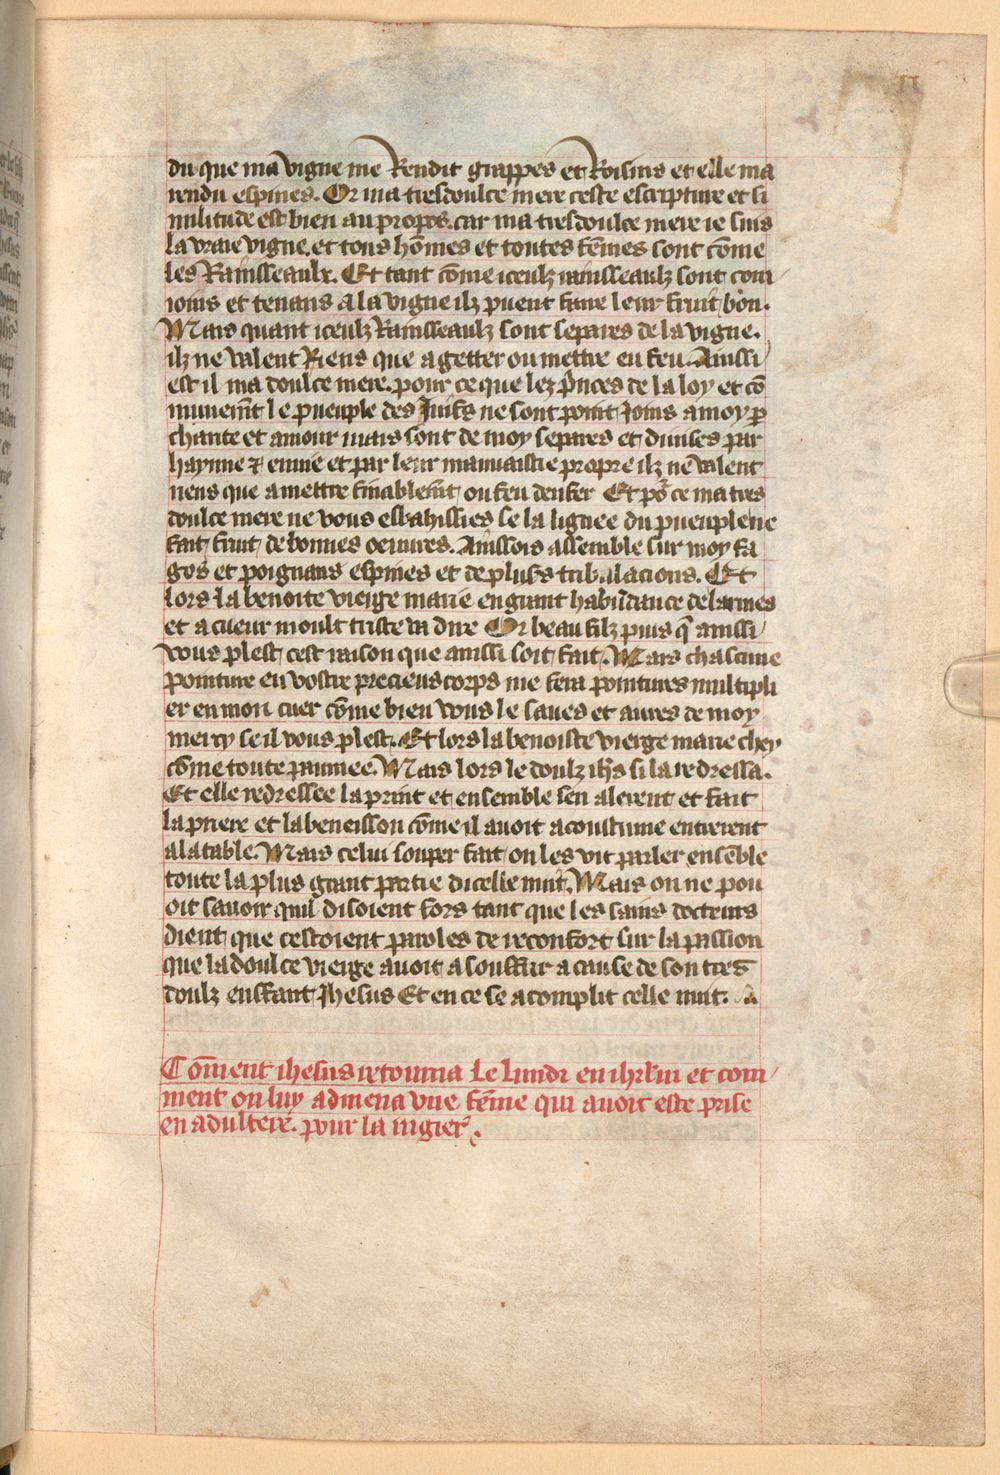 11
du que ma vigne me Rendit grappes et Roisins et elle ma
rendu espines. Or ma tresdoulce mere ceste escripture et si
militude est bien au propos. car ma tresdoulce mere ie suis
la vraie vigne. et tous hōmes et toutes fēmes sont cōme
les Rainsseaulx. Et tant cōme iceulz rainsseaulz sont con
ioins et tenans a la vigne ilz pueent faire leur fruit bon.
Mais quant iceulz Rainsseaulz sont separes de la vigne.
ilz ne valent Riens que a getter ou mettre en feu. Ainssi
est il ma doulce mere. pour ce que lez p̄nces de la loy et cō
munemt̄ le pueuple des Juifs ne sont point Joins a moy p̲
charite et amour mais sont de moy separes et diuises par
haynne ⁊ enuie et par leur mauuaistie propre ilz ne valent
riens que a mettre finablemt̄ ou feu denfer Et po͛ ce ma tres
doulce mere ne vous esbahissies se la lignee du pueuple ne
fait fruit de bonnes oeuures. Ainssois assemble sur moy fa
gos et poignans espines et de pluss tribulacions. Et
lors la benoite vierge marie en grant habūdance de larmes
et a cueur moult triste va dire Or beau filz puis q̄ ainssi
vous plest cest raison que ainssi soit fait. Mais chascune
pointure en vostre precieus corps me fera pointures multipli
er en mon cuer cōme bien vous le saues et aures de moy
mercy se il vous plest. Et lors la benoiste vierge marie chey
cōme toute paumee. Mais lors le doulz ihs̄ si la redressa.
Et elle redressee la print et ensemble sen alerent et fait
la priere et la beneisson cōme il auoit acoustume entrerent
a la table. Mais celui souper fait on les vit parler ensēble
toute la plus grant partie dicelle nuit. Mais on ne pou
oit sauoir quil disoient fors tant que les sains docteurs
dient que cestoient paroles de reconfort sur la passion
que la doulce vierge auoit a souffrir a cause de son tres
doulz enffant Jhesus Et en ce se acomplit celle nuit.
Cōment ihesus retourna Le lundi en ihrl̄m et com
ment on luy admena vne fēme qui auoit este prise
en adultere. pour la iugier.